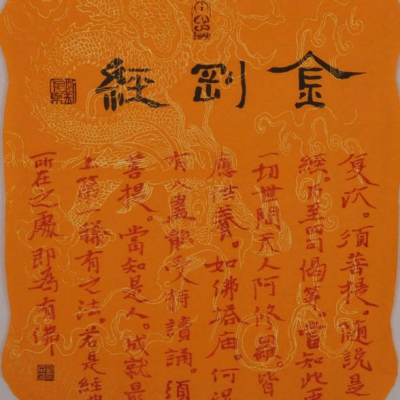 金剛經
復次。須菩提。隨說是
經。乃至四句偈等。當知此處
一切世間天人阿修羅。皆
應供養。如佛塔廟。何況
有人盡能受持讀誦。須
菩提。當知是人。成就最
上第一稀有之法。若是經典
所在之處即為有佛